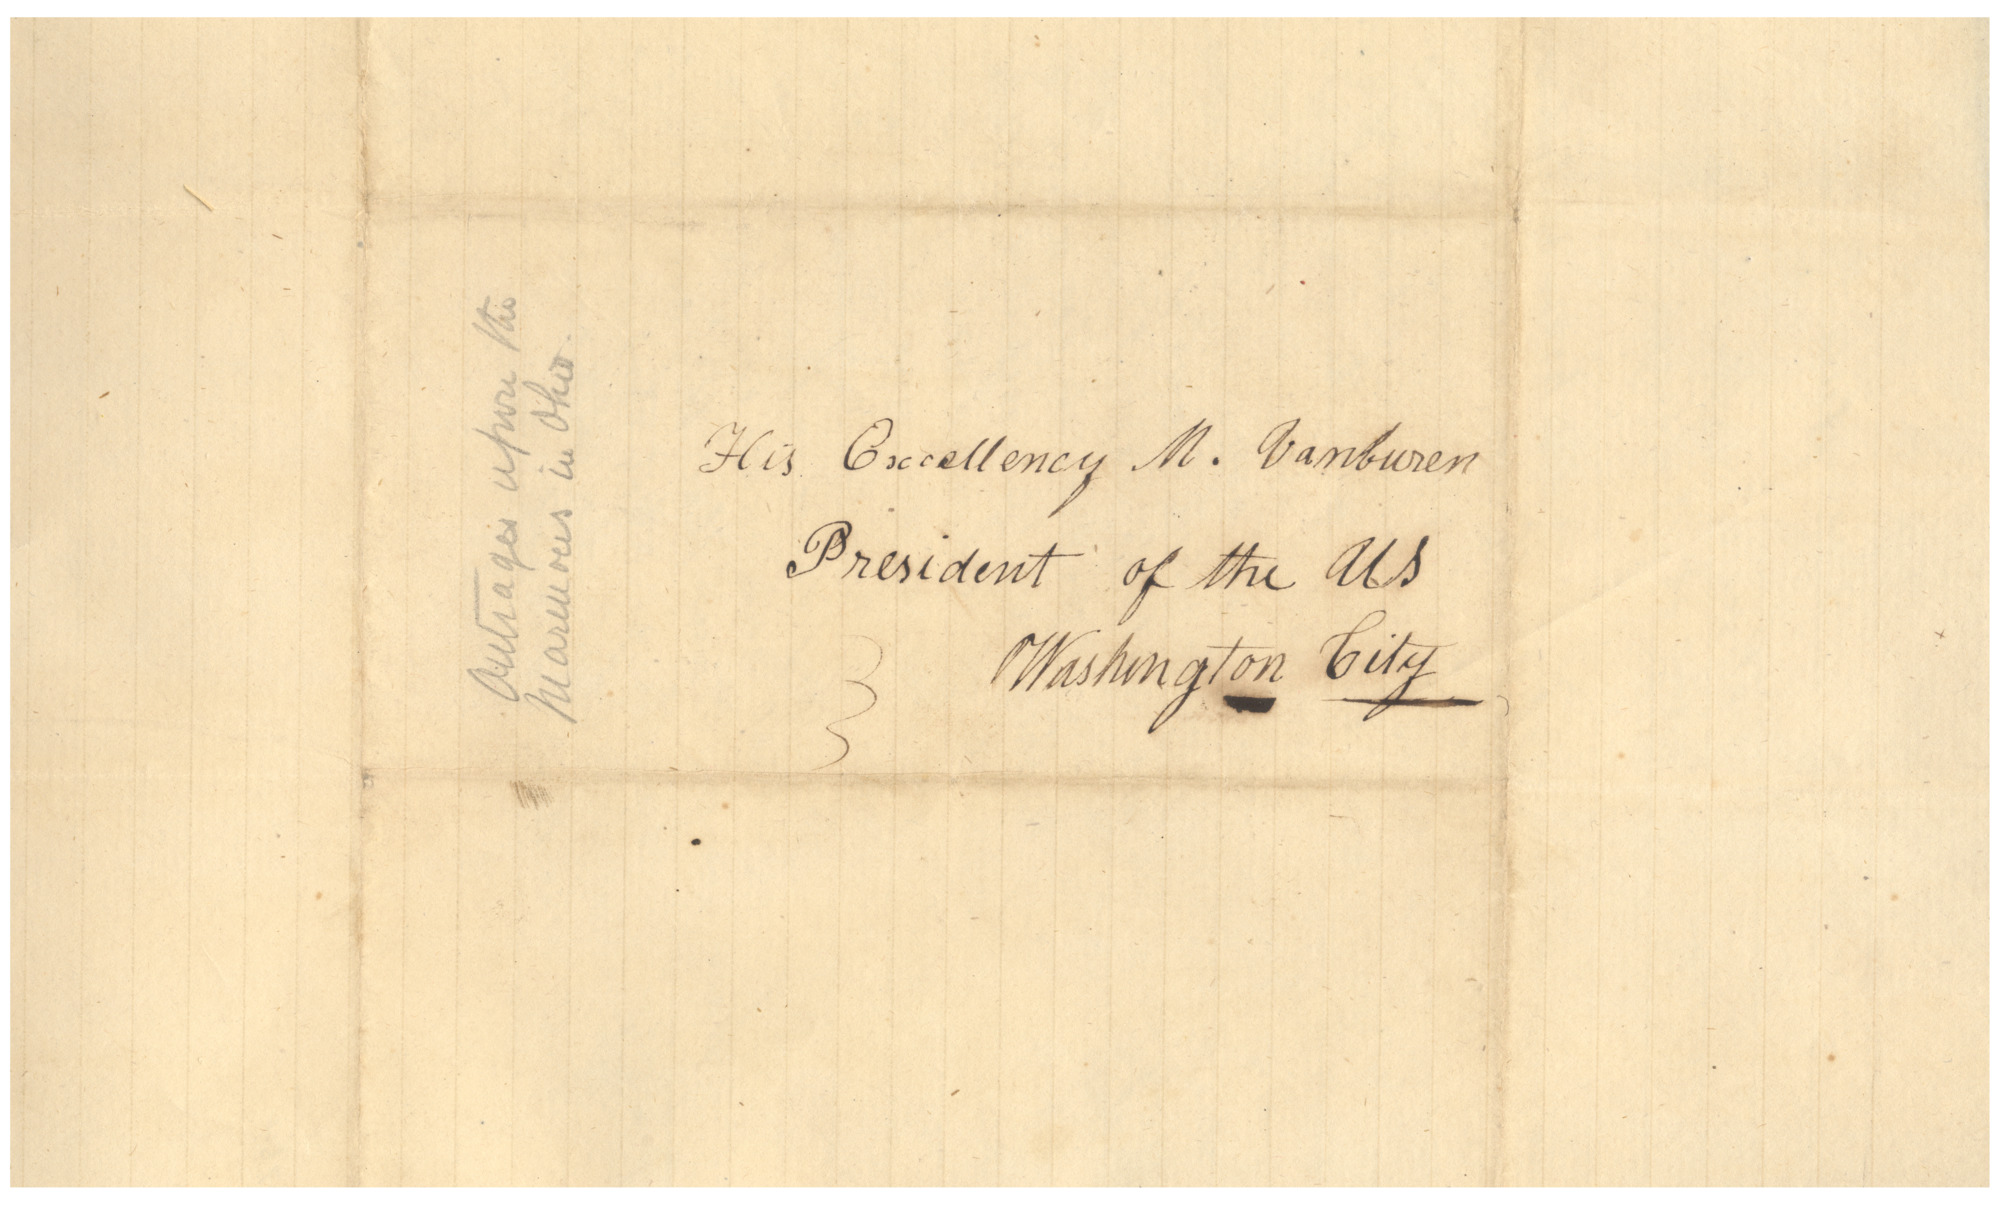 Outrages upon the
Marmons in Ohio.
His Excellency M. Vanburen
President of the US
Washington City